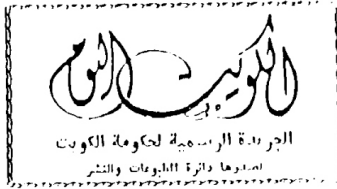 الكويت اليوم
الجريدة الرسمية لحكومة الكويت
تصدرها دائرة المطبوعات والنشر